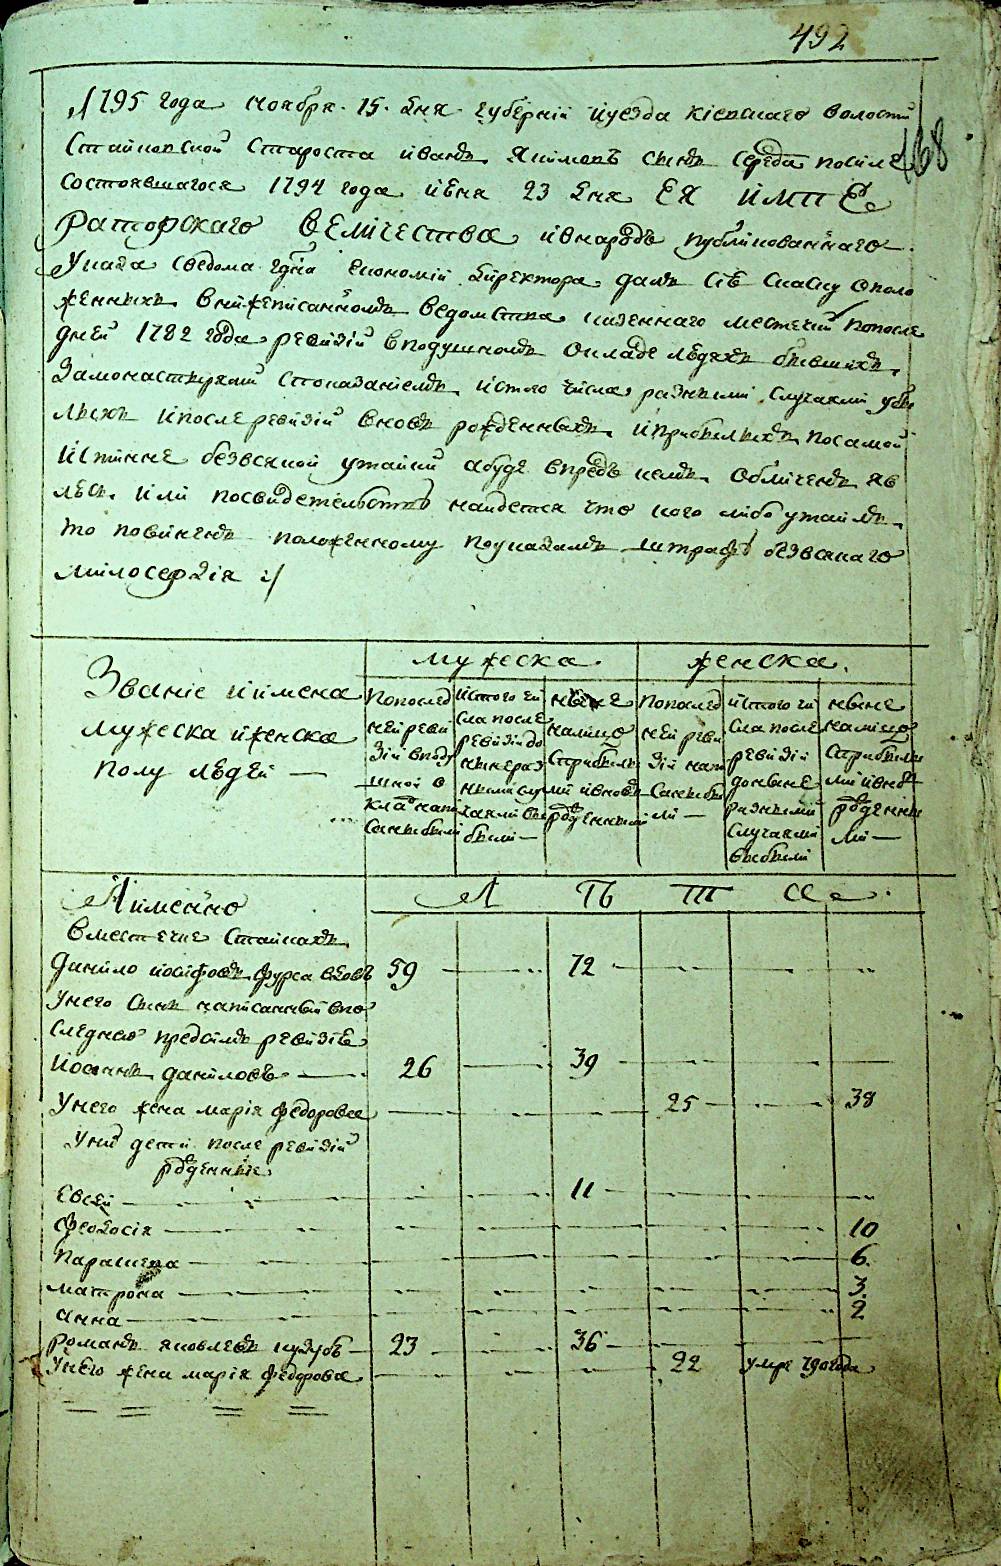 492
168
1795 года ноября 15 дня губернии и уезда киевского волости
Стайковской Староста иванъ Якимовъ сынъ Середа посиле
состоявшагося 1794 года июня 23 дня ЕЯ ИМПЕ
РАТОРСКАГО ВЕЛИЧЕСТВА и внародъ публикованнаго
Указа сведома гдна Економии Директора далъ сию Скаску ополо
женныхъ внижеписанномъ ведомства казеннаго местечки попосле
дней 1782 года ревизии вподушномъ окладе людяхъ бывшихъ
Замонастырями споказаниемъ истого числа разными случаями убы
лыхъ ипосле ревизии вновь рожденныхъ иприбылыхъ посамой
Истинне безвсякой утайки абуде впредь кемъ обличенъ яв
люсь или посвидетельству найдется что кого либо утаилъ
то повиненъ положенному поуказамъ штрафу безвсякаго
милосердия :/
Звание иимена
мужеска иженска
полу людей —
мужеска
женска
Попослед
ней реви
зии вподу
шной о
кладъ напи
саны были
Истого чи
сла после
ревизии до
ныне раз
ными слу
чаями вы
были —
ныне
налицо
Сприбылы
ми ивновь
рожденными
Попослед
ней реви
зии напи
саны бы
ли —
Истого чи
сла после
ревизии
доныне
разными
случаями
выбыли
ныне
налицо
Сприбылы
ми ивновь
рожденны
ми —
Аименно
Л Ѣ Т А
вместечке Стайкахъ
Данило иосифовъ фурса вдовъ 59 72
Унего сынъ написанный впо
следнюю предсимъ ревизию
Иоанъ даниловъ 26 39
Унего жена мария федорова 25 38
Уних дети после ревизии
рожденные
Евсей 11
Феодосия 10
Параскева 6
матрона 3
анна 2
романъ яковлевъ кузубъ 23 36
Унего жена мария федорова 22 умре 790 года